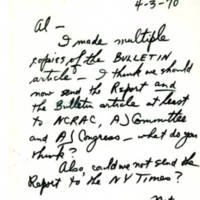 4-3-70
Al —
I made multiple
copies of the BULLETIN
article — I think we should
now send the Report and
the Bulletin article at least
to NCRAC, AJCommittee
and AJCongress — what do you
think?
Also, could we not send the
Report to the NY Times?